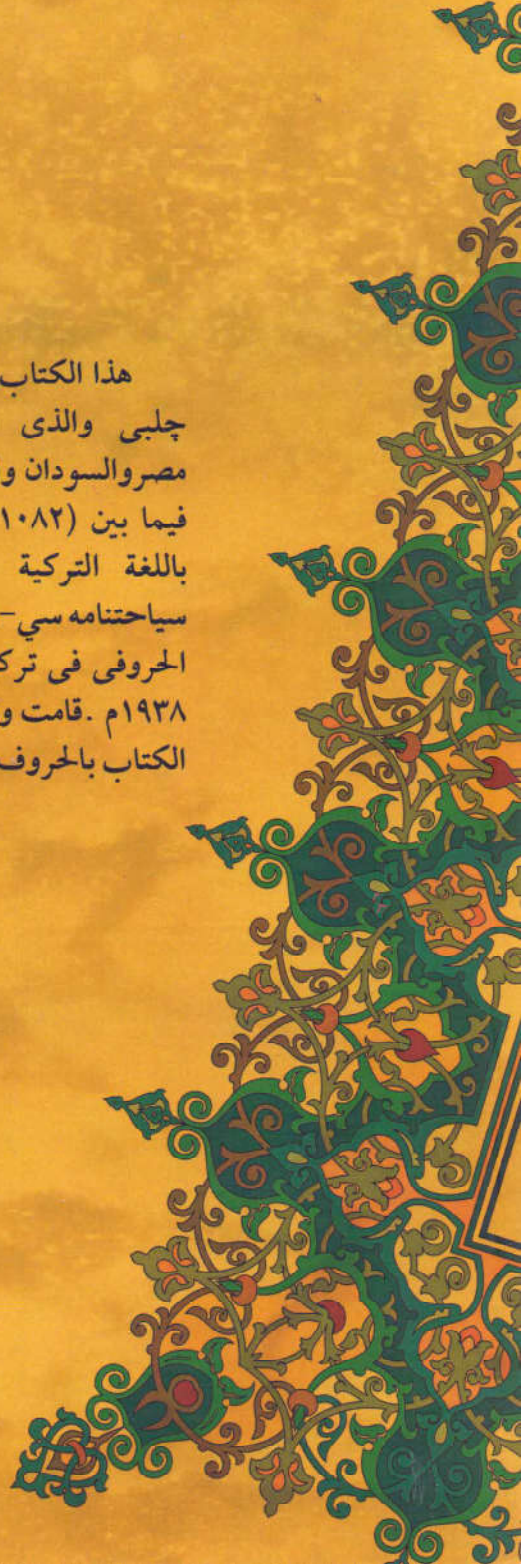 هذا الكتاب
چلبى والذى
مصروالسودان و
فيما بين (١٠٨٢
باللغة التركية
سياحتنامه سي–
الحروفى فى ترك
١٩٣٨م .قامت و
الكتاب بالحروف